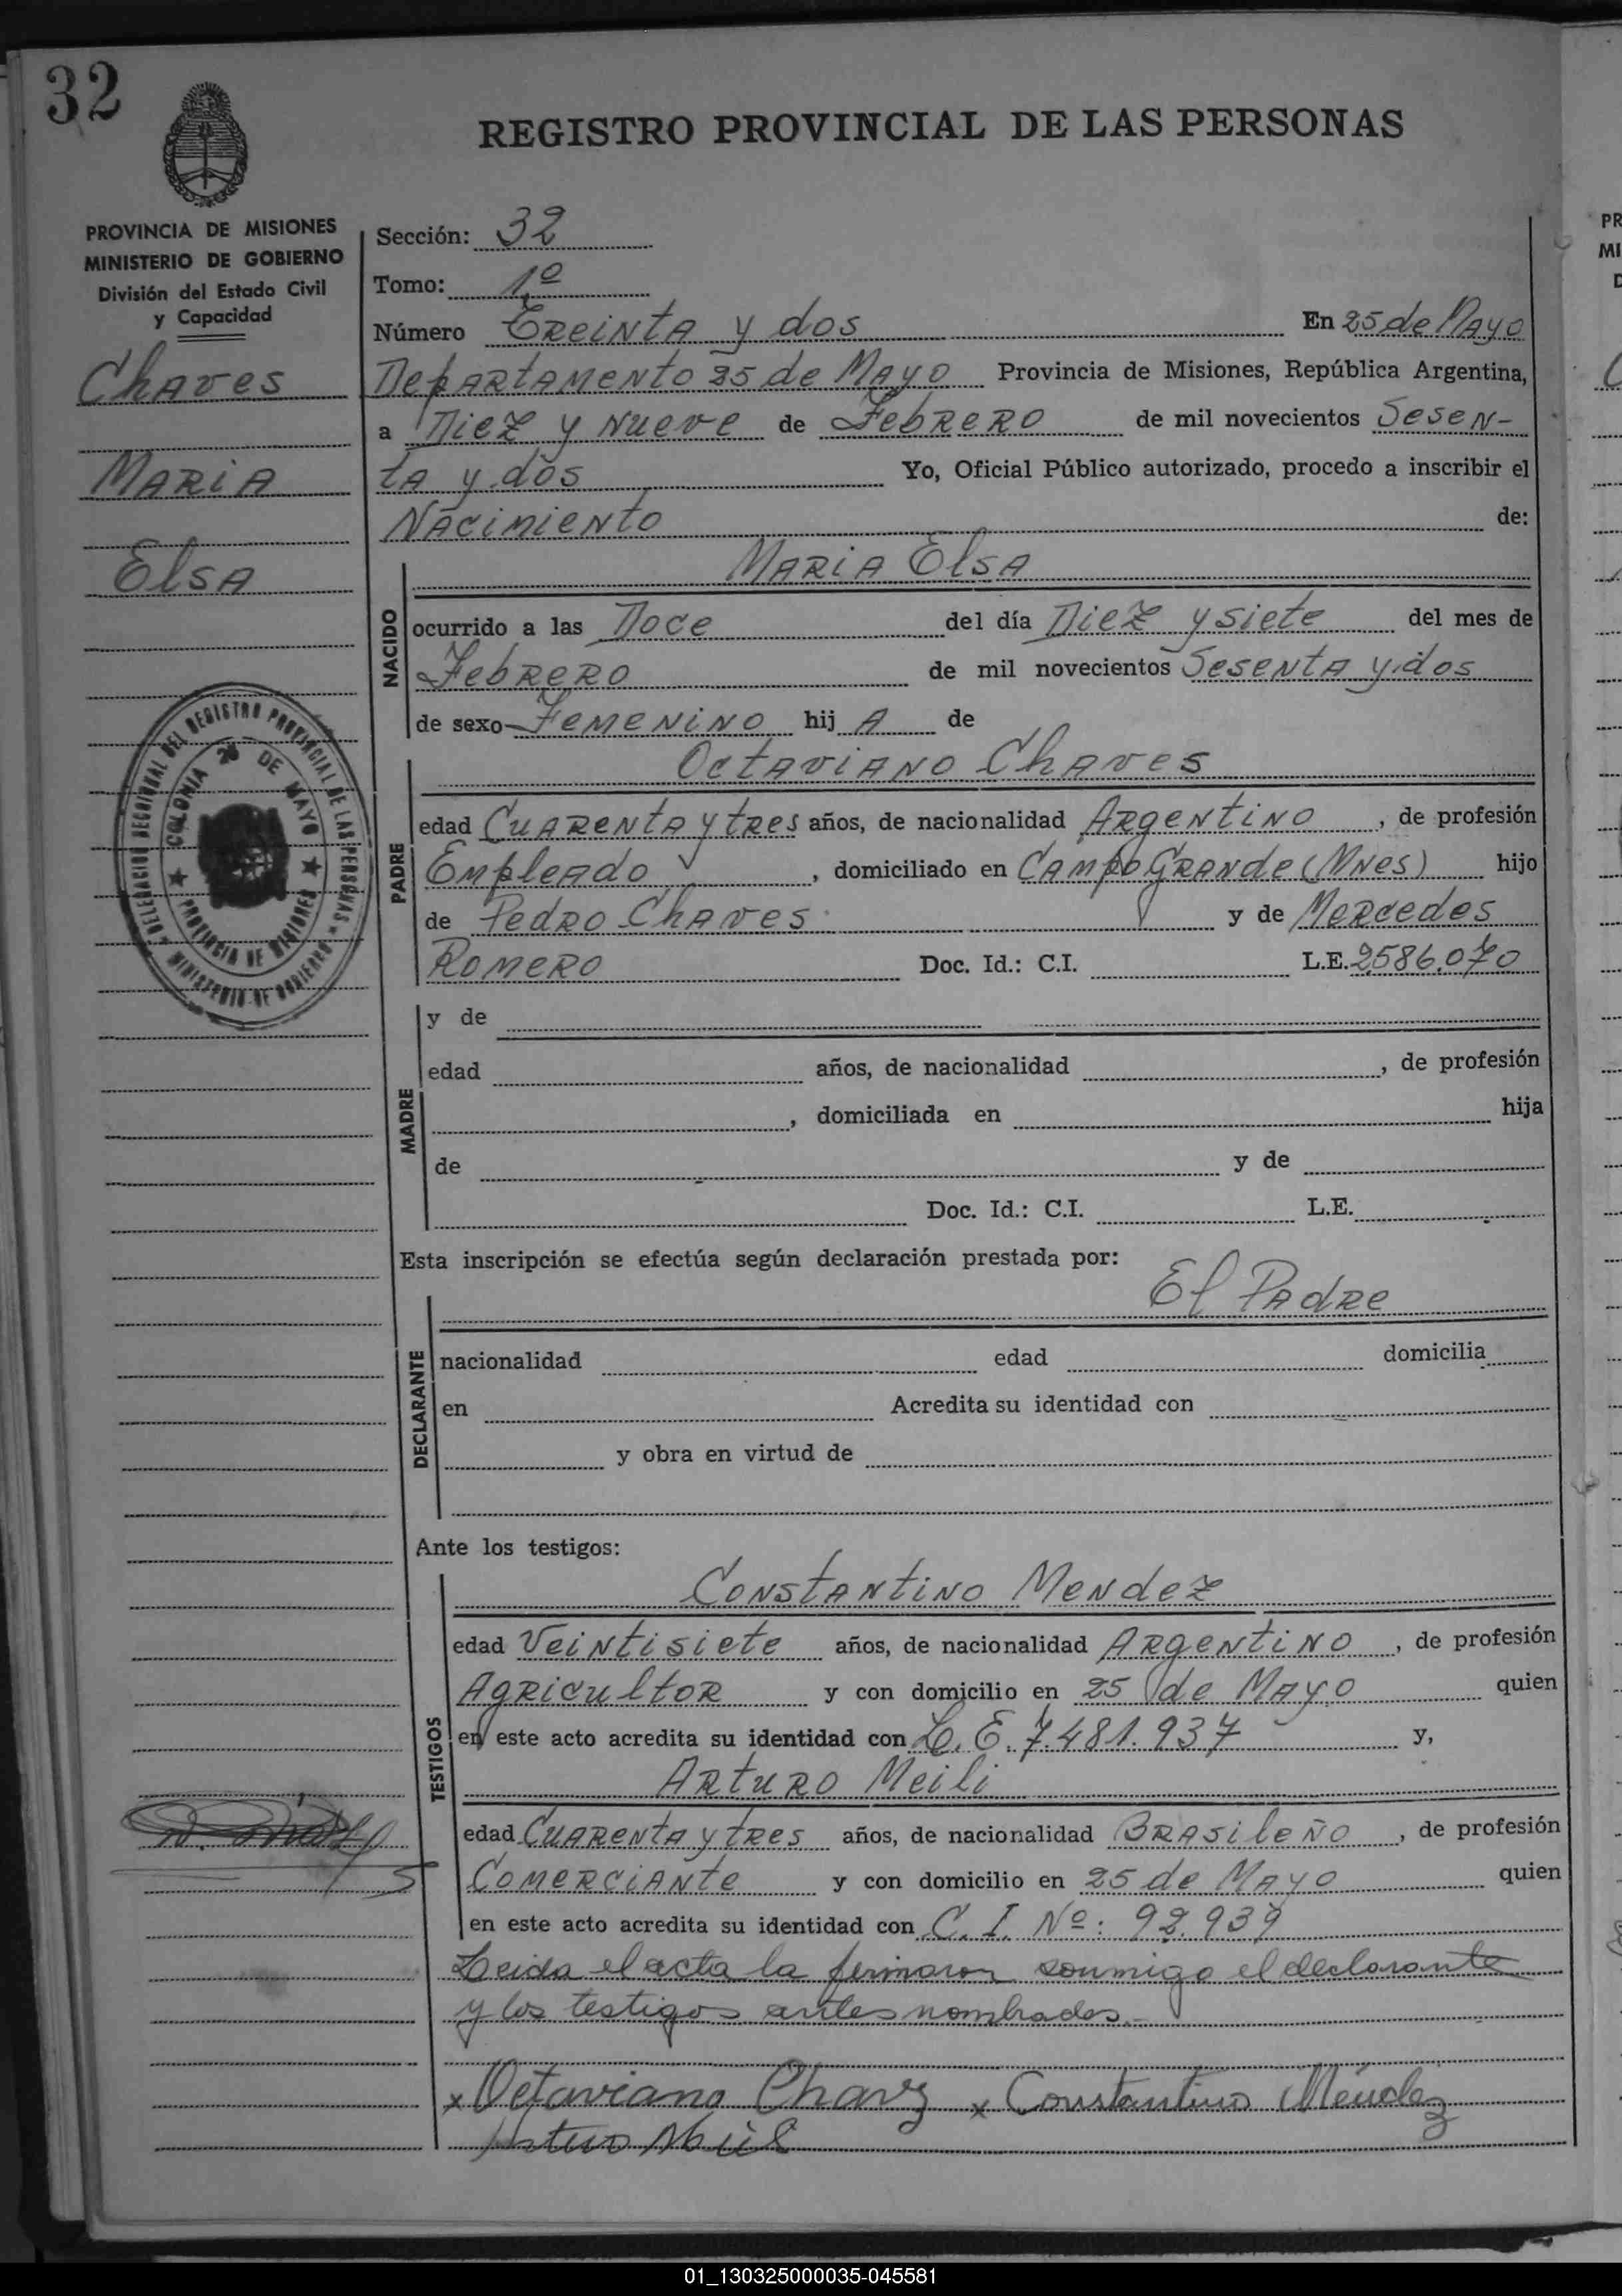 32
REGISTRO PROVINCIAL DE LAS PERSONAS
PROVINCIA DE MISIONES
MINISTERIO DE GOBIERNO
División del Estado Civil
y Capacidad
Chaves
MARIA
ElsA
DELEGACION REGIONAL DEL REGISTRO PROVINCIAL DE LAS PERSONAS
MINISTERIO DE GOBIERNO
COLONIA 25 DE MAYO
PROVINCIA DE MISIONES
Sección: 32
Tomo: 1º
Número Treinta y dos En 25 de Mayo
Departamento 25 de Mayo Provincia de Misiones, República Argentina,
a Diez y Nueve de Febrero de mil novecientos Sesen-
ta y dos Yo, Oficial Público autorizado, procedo a inscribir el
Nacimiento de:
NACIDO
Maria Elsa
ocurrido a las Doce del día Diez y siete del mes de
Febrero de mil novecientos Sesenta y dos
de sexo Femenino hij A de
PADRE
Octaviano Chaves
edad Cuarenta y tres años, de nacionalidad Argentino, de profesión
Empleado, domiciliado en Campo Grande (Mnes) hijo
de Pedro Chaves y de Mercedes
Romero Doc. Id.: C.I. L.E. 2586.070
MADRE
y de
edad años, de nacionalidad , de profesión
, domiciliada en hija
de y de
Doc. Id.: C.I. L.E.
Esta inscripción se efectúa según declaración prestada por:
El Padre
DECLARANTE
nacionalidad edad domicilia
en Acredita su identidad con
y obra en virtud de
Ante los testigos:
TESTIGOS
Constantino Mendez
edad Veintisiete años, de nacionalidad Argentino, de profesión
Agricultor y con domicilio en 25 de Mayo quien
en este acto acredita su identidad con L.E. 7.481.937 y,
Arturo Meili
edad Cuarenta y tres años, de nacionalidad Brasileño, de profesión
Comerciante y con domicilio en 25 de Mayo quien
en este acto acredita su identidad con C.I. Nº: 92.939
Leida el acta la firmaron conmigo el declarante
y los testigos antes nombrados.-
x Octaviano Chavz x Constantino Méndez
Arturo Meili
PR
MI
01_130325000035-045581